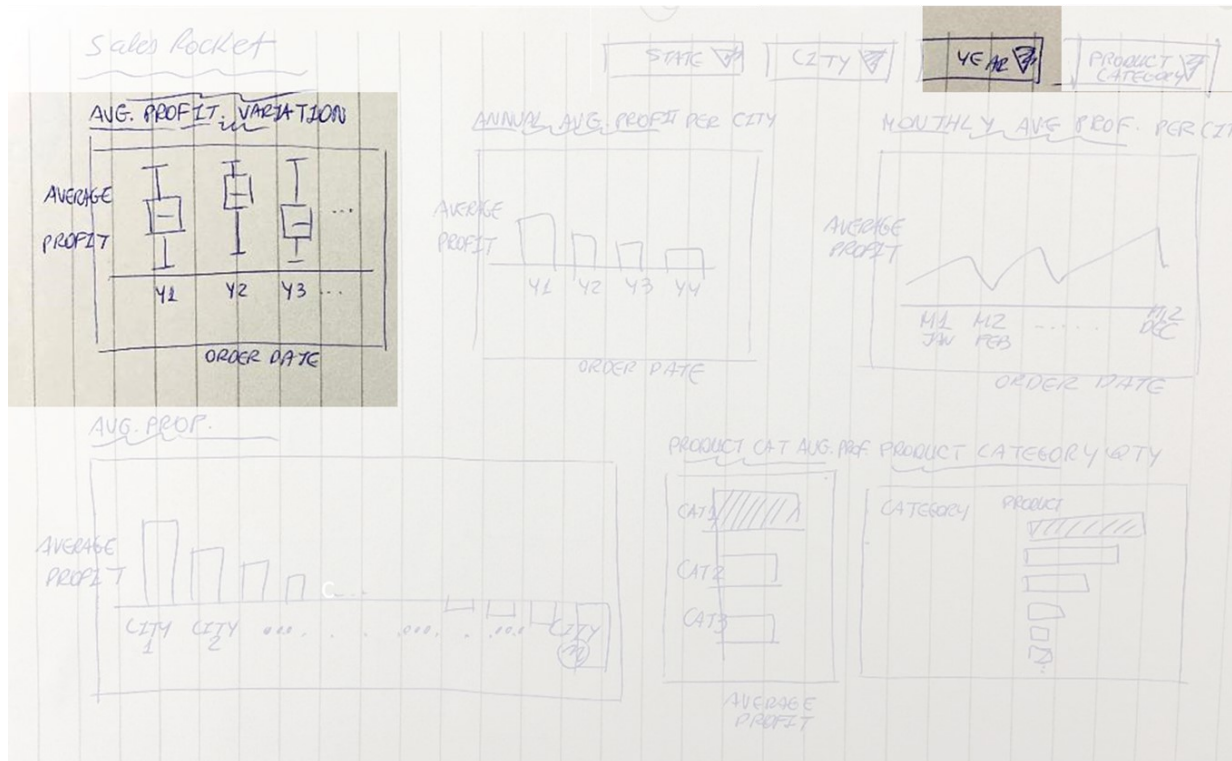 Sales Rocket
STATE
CITY
YEAR
PRODUCT
CATEGORY
AVG. PROFIT. VARIATION
AVERAGE
PROFIT
Y1 Y2 Y3 ...
ORDER DATE
ANNUAL AVG. PROFIT PER CITY
AVERAGE
PROFIT
Y1 Y2 Y3 Y4
ORDER DATE
MONTHLY AVG PROF. PER CIT
AVERAGE
PROFIT
M1 M2 ..... M12
JAN FEB DEC
ORDER DATE
AVG. PROF.
AVERAGE
PROFIT
CITY CITY .... . . .... .... CITY
1 2 n
PRODUCT CAT AVG. PROF.
CAT1
CAT2
CAT3
AVERAGE
PROFIT
PRODUCT CATEGORY QTY
CATEGORY PRODUCT